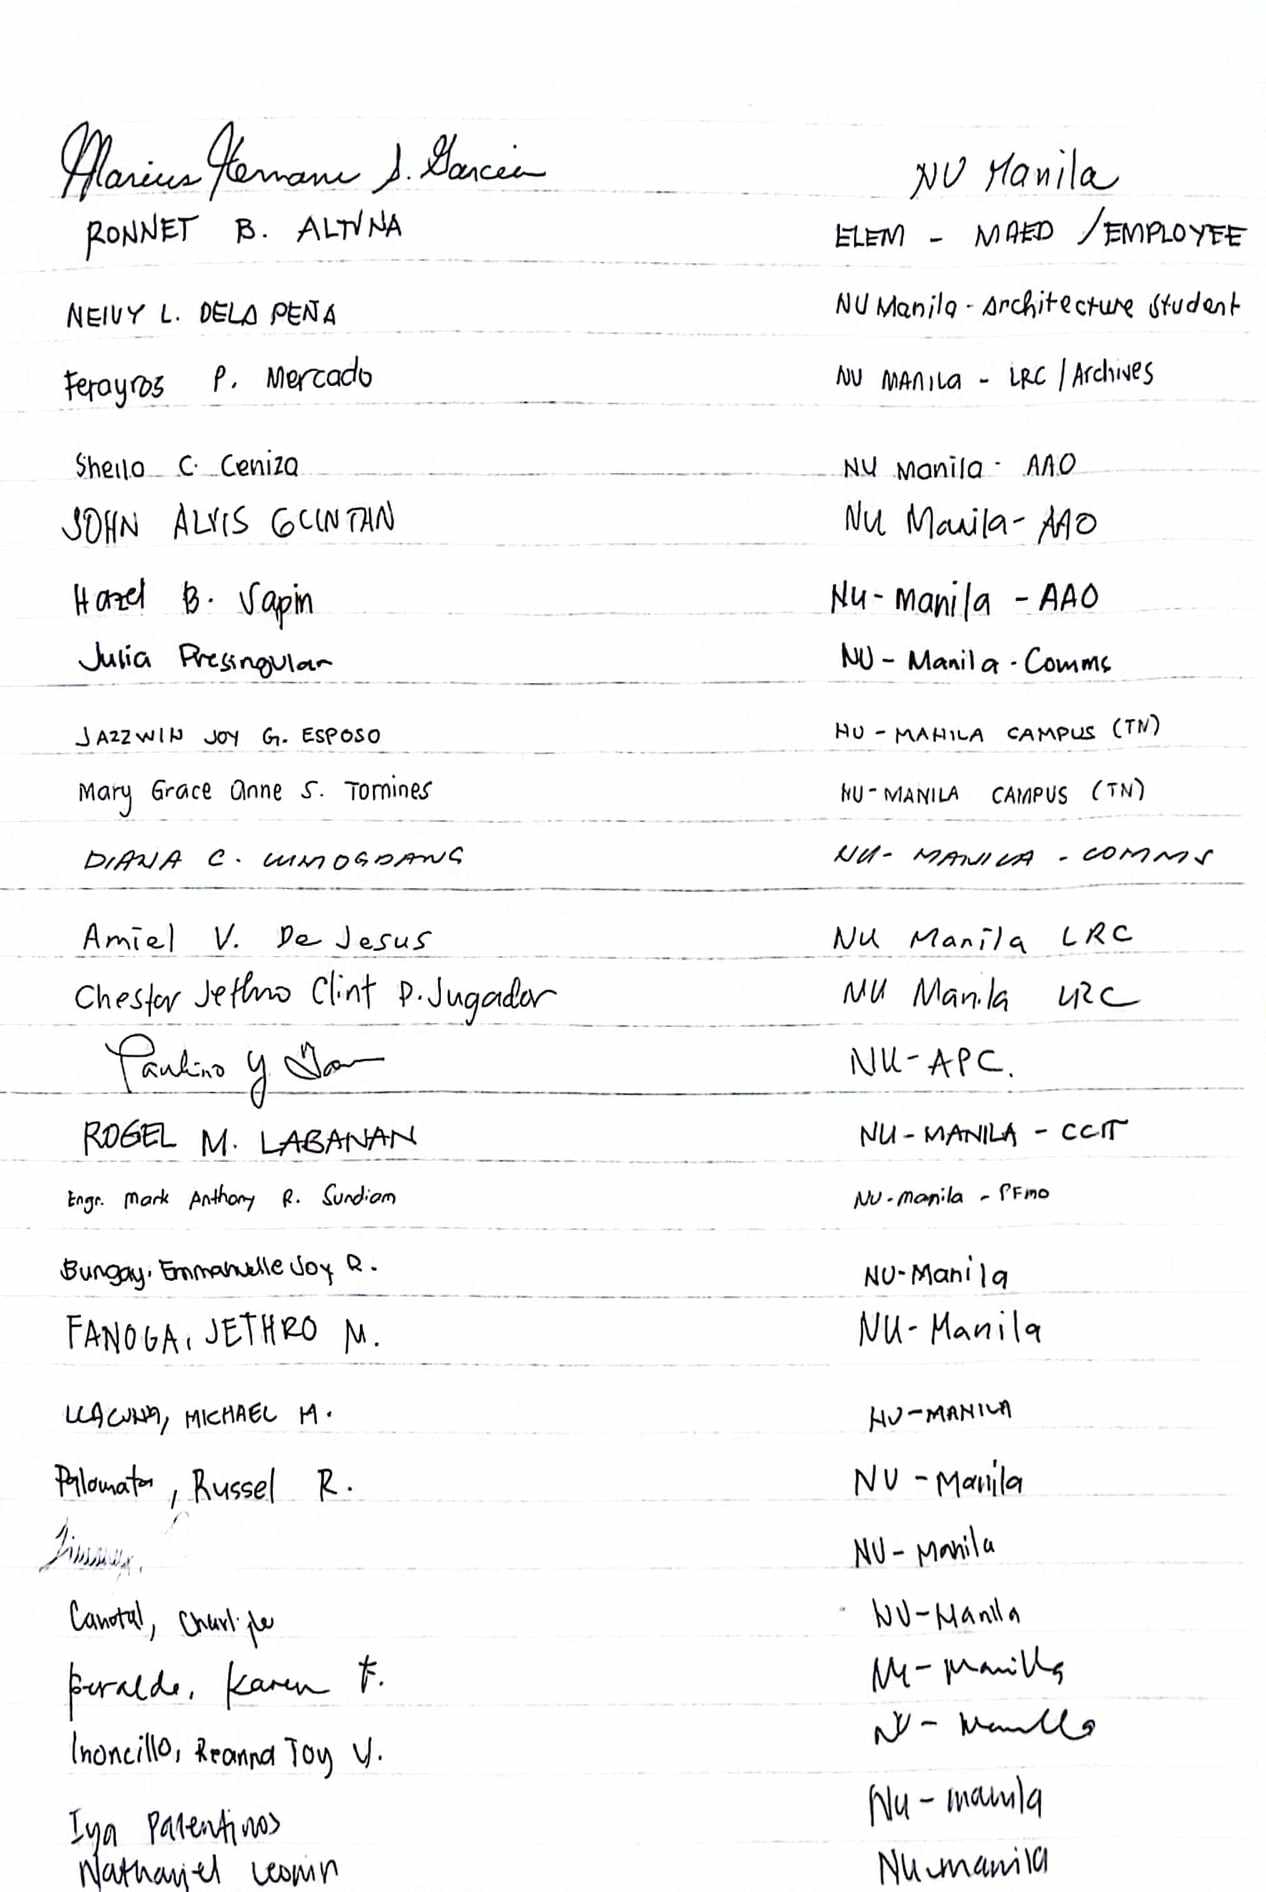 Marius Hernane S. Garcia NU Manila
RONNET B. ALTUNA ELEM - MAED / EMPLOYEE
NEIVY L. DELA PEÑA NU Manila - Architecture Student
Ferayros P. Mercado NU MANILA - LRC / Archives
Sheila C. Ceniza NU Manila - AAO
JOHN ALVIS NU Manila - AAO
Hazel B. Sapin NU - Manila - AAO
Julia Presingular NU - Manila - Comms
JAZZWIN JOY G. ESPOSO NU - MANILA CAMPUS (TN)
Mary Grace Anne S. Tomines NU - MANILA CAMPUS (TN)
DIANA C. LUMOGDANG NU - MANILA - COMMS
Amiel V. De Jesus NU Manila LRC
Chester Jethro Clint P. Jugador NU Manila LRC
Paulino Y NU - APC.
ROGEL M. LABANAN NU - MANILA - CCIT
Engr. Mark Anthony R. Sundiam NU - Manila - PFMO
Bungay, Emmanuelle Joy R. NU - Manila
FANOGA, JETHRO M. NU - Manila
LLACUNA, MICHAEL M. NU - MANILA
Russel R. NU - Manila
NU - Manila
NU - Manila
Karen F. NU - Manila
Inoncillo, Reanna Joy V. NU - Manila
Iya Palentinos NU - Manila
Nathaniel NU - Manila